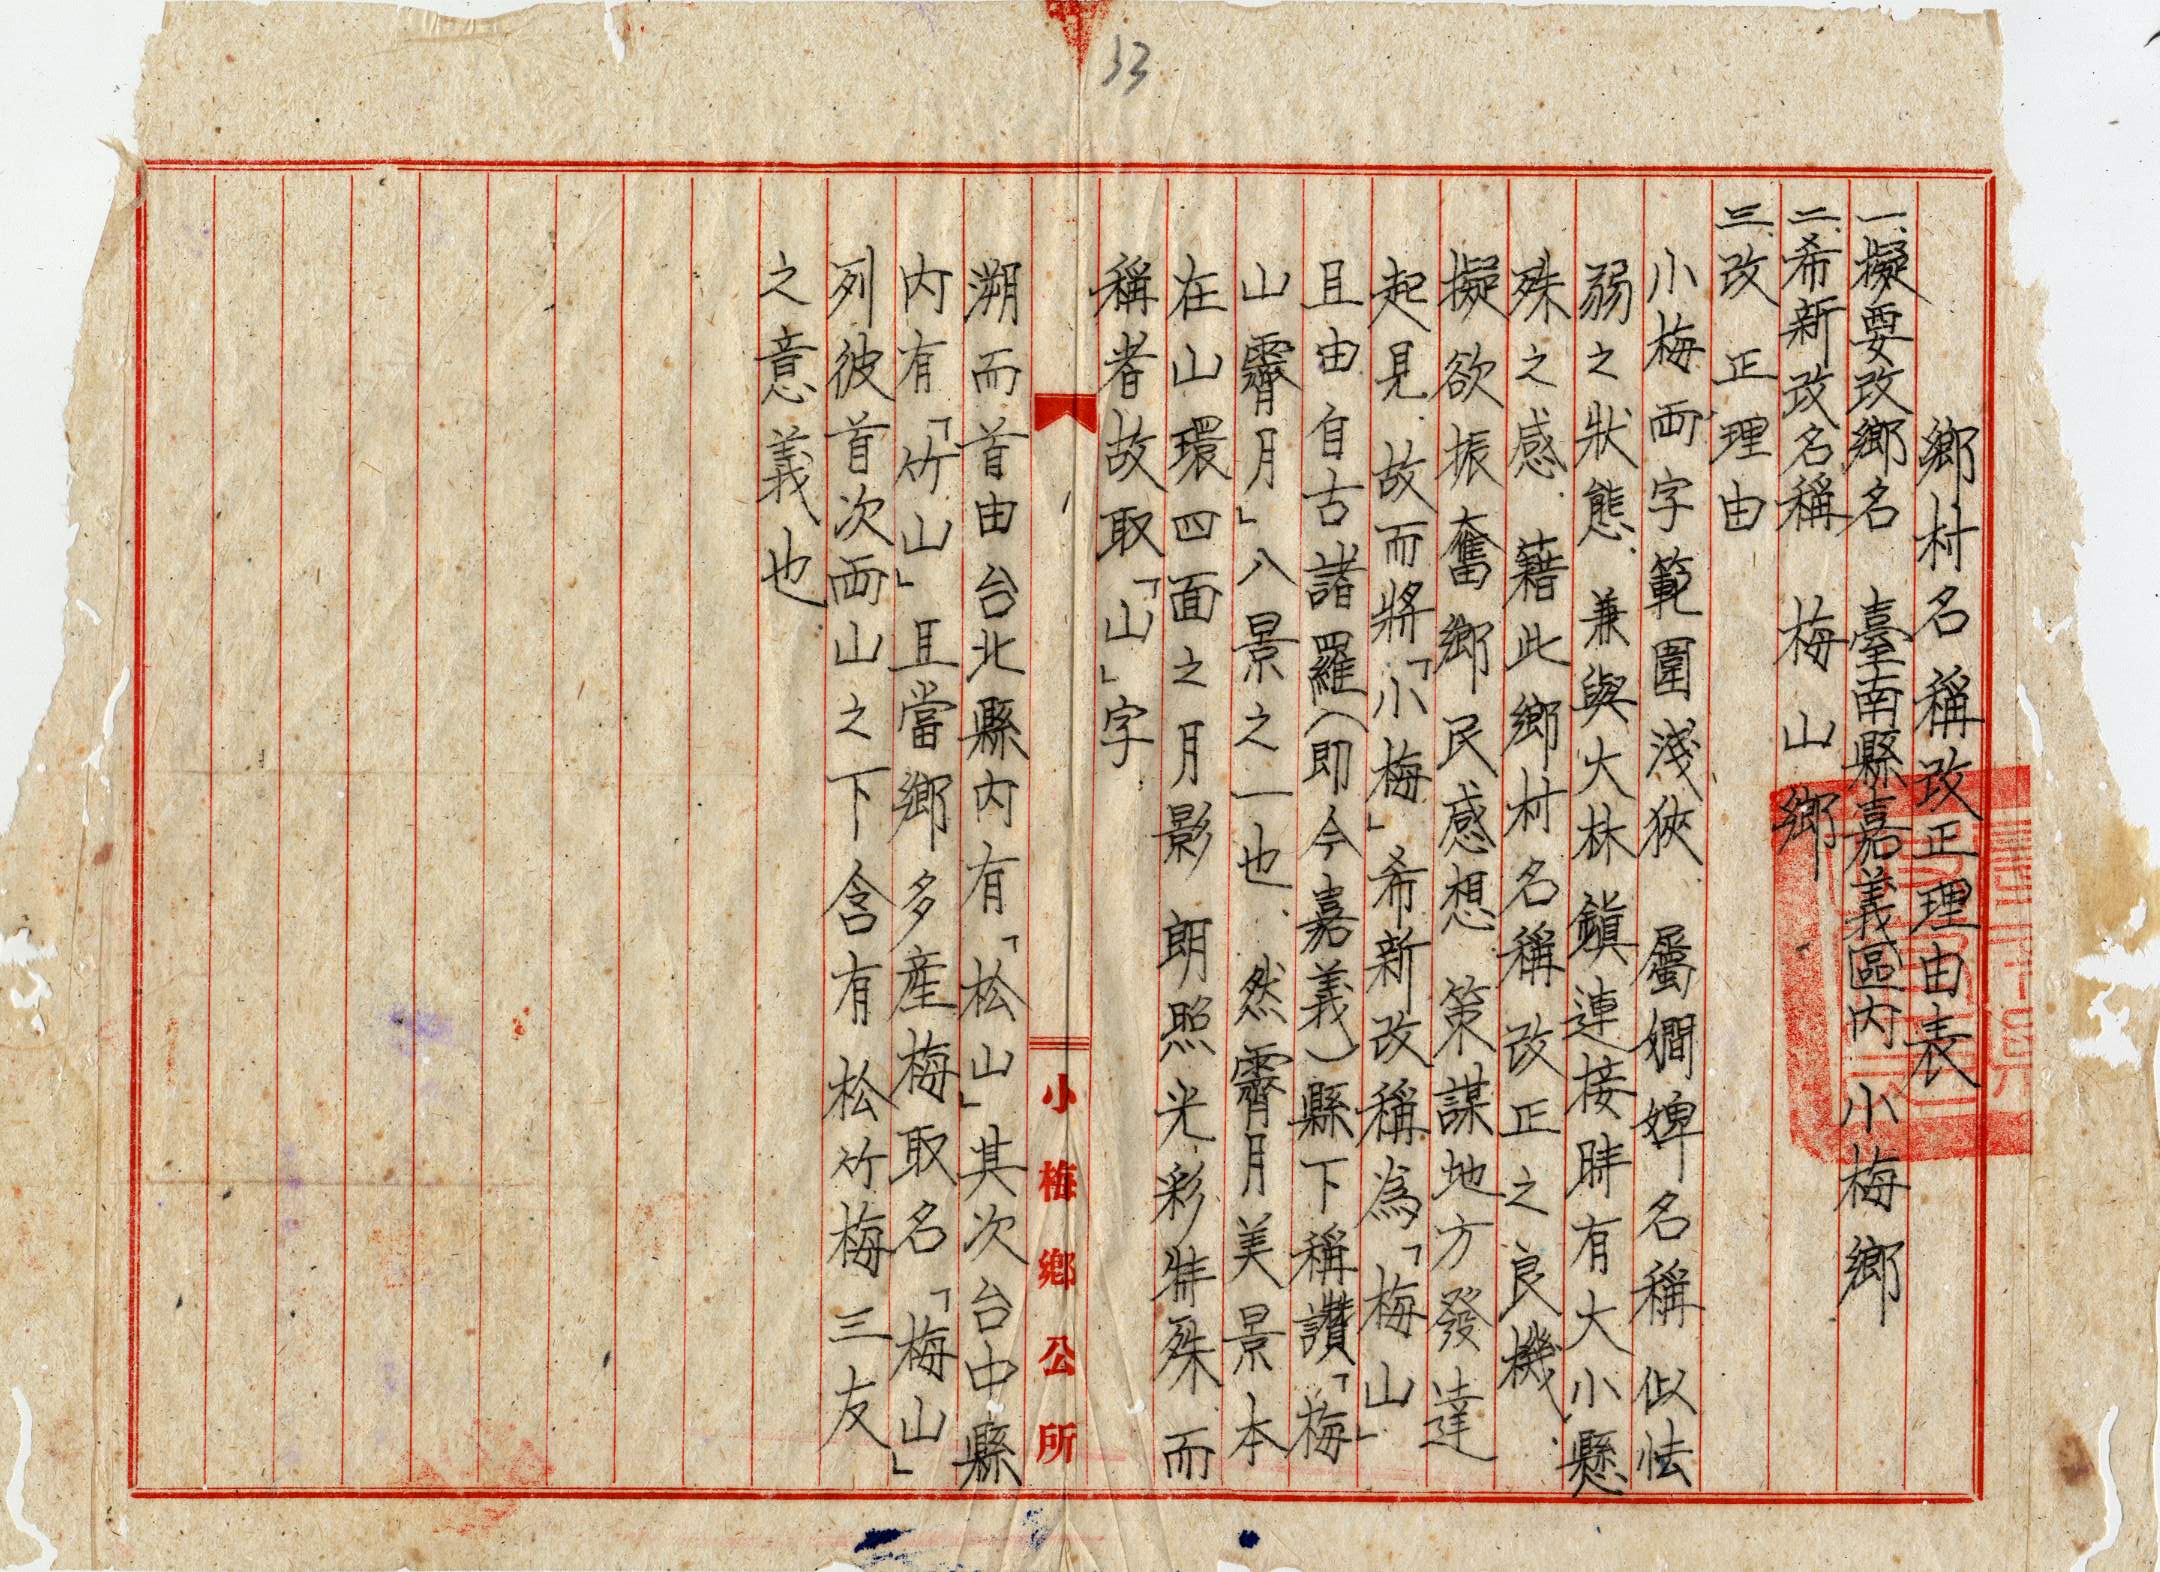 33
鄉村名稱改正理由表
一、擬要改鄉名　臺南縣嘉義區內　小梅鄉
二、希新改名稱　梅山鄉
三、改正理由
小梅両字範圍淺狹　屬嫺婢名稱似怯
弱之狀態、兼與大林鎮連接時有大小懸
殊之感　藉此鄉村名稱改正之良機、
擬欲振奮鄉民感想　策謀地方發達
起見　故而將「小梅」希新改稱為「梅山」
且由自古諸羅（即今嘉義）縣下稱讚「梅
山霽月」八景之一也、然霽月美景本
在山環四面之月影　朗照光彩特殊而
稱者故取「山」字
小梅鄉公所
溯而首由台北縣內有「松山」其次台中縣
內有「竹山」且當鄉多產梅取名「梅山」
列彼首次両山之下含有松竹梅三友
之意義也